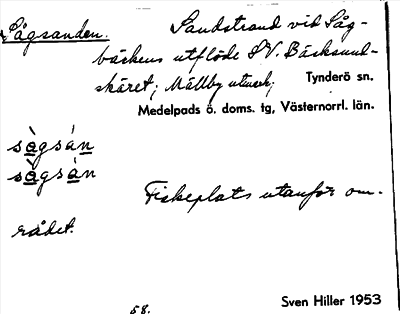 Sågsanden. Sandstrand vid Såg-
bäckens utflöde SV. Bäcksund-
skäret; Mällby utmark; Tynderö sn.
Medelpads ö. doms. tg, Västernorrl. län.
sågsán
sågsán
Fiskeplats utanför om-
rådet.
58. Sven Hiller 1953